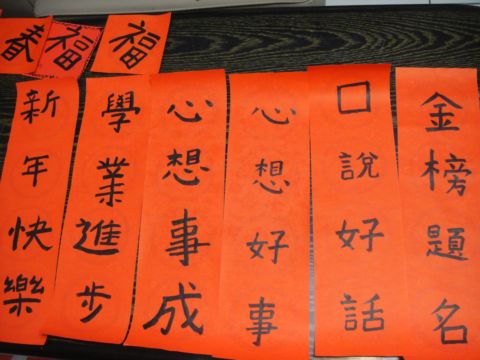 春
福
福
新年快樂
學業進步
心想事成
心想好事
口說好話
金榜題名